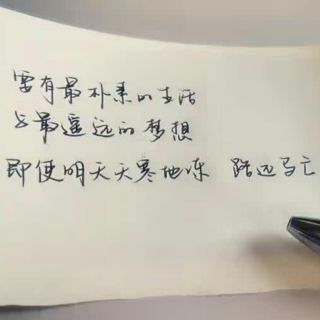 要有最朴素的生活
与最遥远的梦想
即使明天天寒地冻 路远马亡